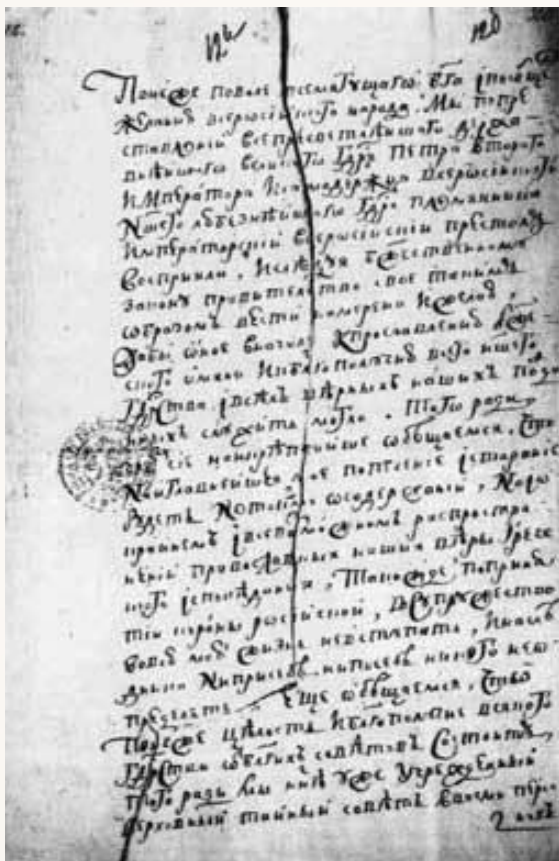 126 120
Понеже по воле всемогущаго бга і по обще
желанию всеросиского народа. Мы по пре
ставлении всепресветлѣишаго держа
внѣишаго великаго Гдря Петра второго
Императора и самодержца всеросиского
Ншего любезнѣишаго Гдря племянника
Императорскиі всеросискиі престолъ
восприяли, и следуя бжественному
закону правительство свое такимъ
образомъ вести намерена и желаю,
Дабы оное вначале к прославлению бже
ского имяни и к благополучию всего ншего
Гдрства і всѣхъ вѣрныхъ нашихъ подда
нныхъ служить могло. Того ради
чрезъ сие наикрѣпчаише обещаемся, что
Наиглавнеишее мое попечение і старание
будетъ не токмо о содержаниі, но и о
краинемъ і всевозможномъ распростра
нениі православныя нашия вѣры Грече
ского исповедания, Такожде по приня
тиі короны росискоі, в супружество
во всю мою жизнь не вступать, и наслѣ
дника ни при себѣ ни по себѣ никого не о
предѣлять. Еще обещаемся, что
Понеже цѣлость и благополучие всякого
Гдрства от благихъ совѣтовъ состоитъ,
того ради мы ннѣ уже учрежденныі
верховныі таиныі совѣтъ в восми перо